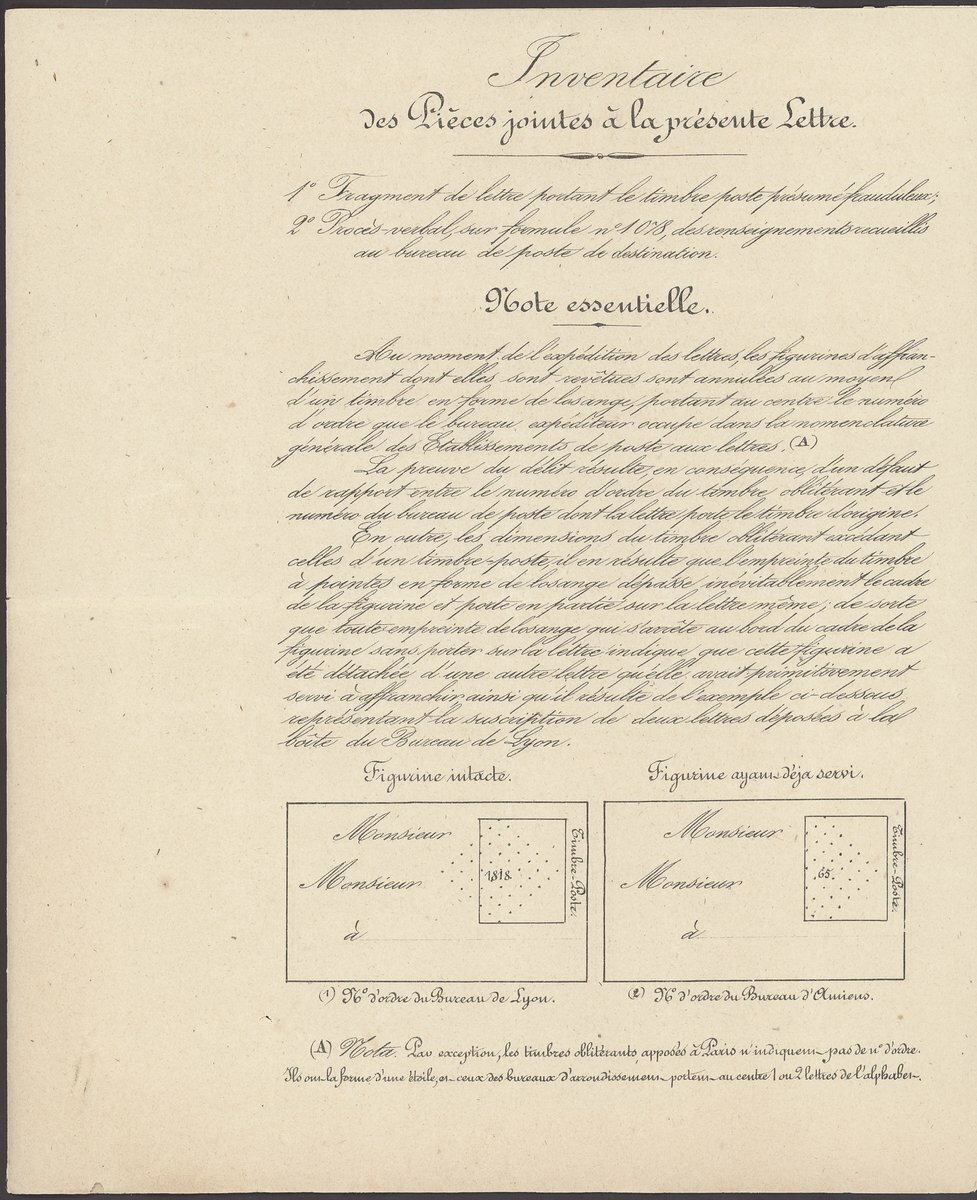 Inventaire
des Pièces jointes à la présente Lettre.
1º Fragment de lettre portant le timbre poste présumé frauduleux;
2º Procès-verbal, sur formule nº 1078, des renseignements recueillis
au bureau de poste de destination.
Note essentielle.
Au moment de l'expédition des lettres, les figurines d'affran-
chissement dont elles sont revêtues sont annullées au moyen
d'un timbre en forme de losange, portant au centre le numéro
d'ordre que le bureau expéditeur occupe dans la nomenclature
générale des Etablissements de poste aux lettres. (A)
La preuve du délit résulte, en conséquence, d'un défaut
de rapport entre le numéro d'ordre du timbre oblitérant et le
numéro du bureau de poste dont la lettre porte le timbre d'origine.
En outre, les dimensions du timbre oblitérant excédant
celles d'un timbre-poste, il en résulte que l'empreinte du timbre
à pointes en forme de losange dépasse inévitablement le cadre
de la figurine et porte en partie sur la lettre même; de sorte
que toute empreinte de losange qui s'arrête au bord du cadre de la
figurine sans porter sur la lettre indique que cette figurine a
été détachée d'une autre lettre qu'elle avait primitivement
servi à affranchir ainsi qu'il résulte de l'exemple ci-dessous
représentant la suscription de deux lettres déposées à la
boîte du Bureau de Lyon.
Figurine intacte.
Monsieur
Monsieur
à
1818
Timbre-Poste.
(1) Nº d'ordre du Bureau de Lyon.
Figurine ayant déja servi.
Monsieur
Monsieur
à
65
Timbre-Poste.
(2) Nº d'ordre du Bureau d'Amiens.
(A) Nota. Par exception, les timbres oblitérants apposés à Paris n'indiquent pas de nº d'ordre.
Ils ont la forme d'une étoile, et ceux des bureaux d'arrondissement portent au centre 1 ou 2 lettres de l'alphabet.